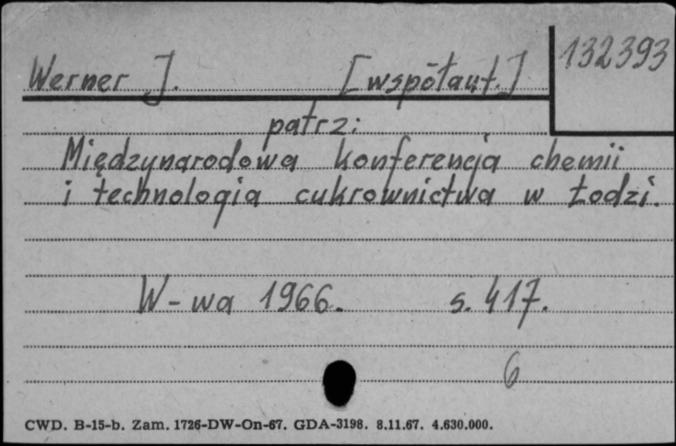 132393
Werner J. [współaut.]
patrz:
Międzynarodowa konferencja chemii
i technologia cukrownictwa w Łodzi.
W-wa 1966. s. 417.
6
CWD. B-15-b. Zam. 1726-DW-On-67. GDA-3198. 8.11.67. 4.630.000.